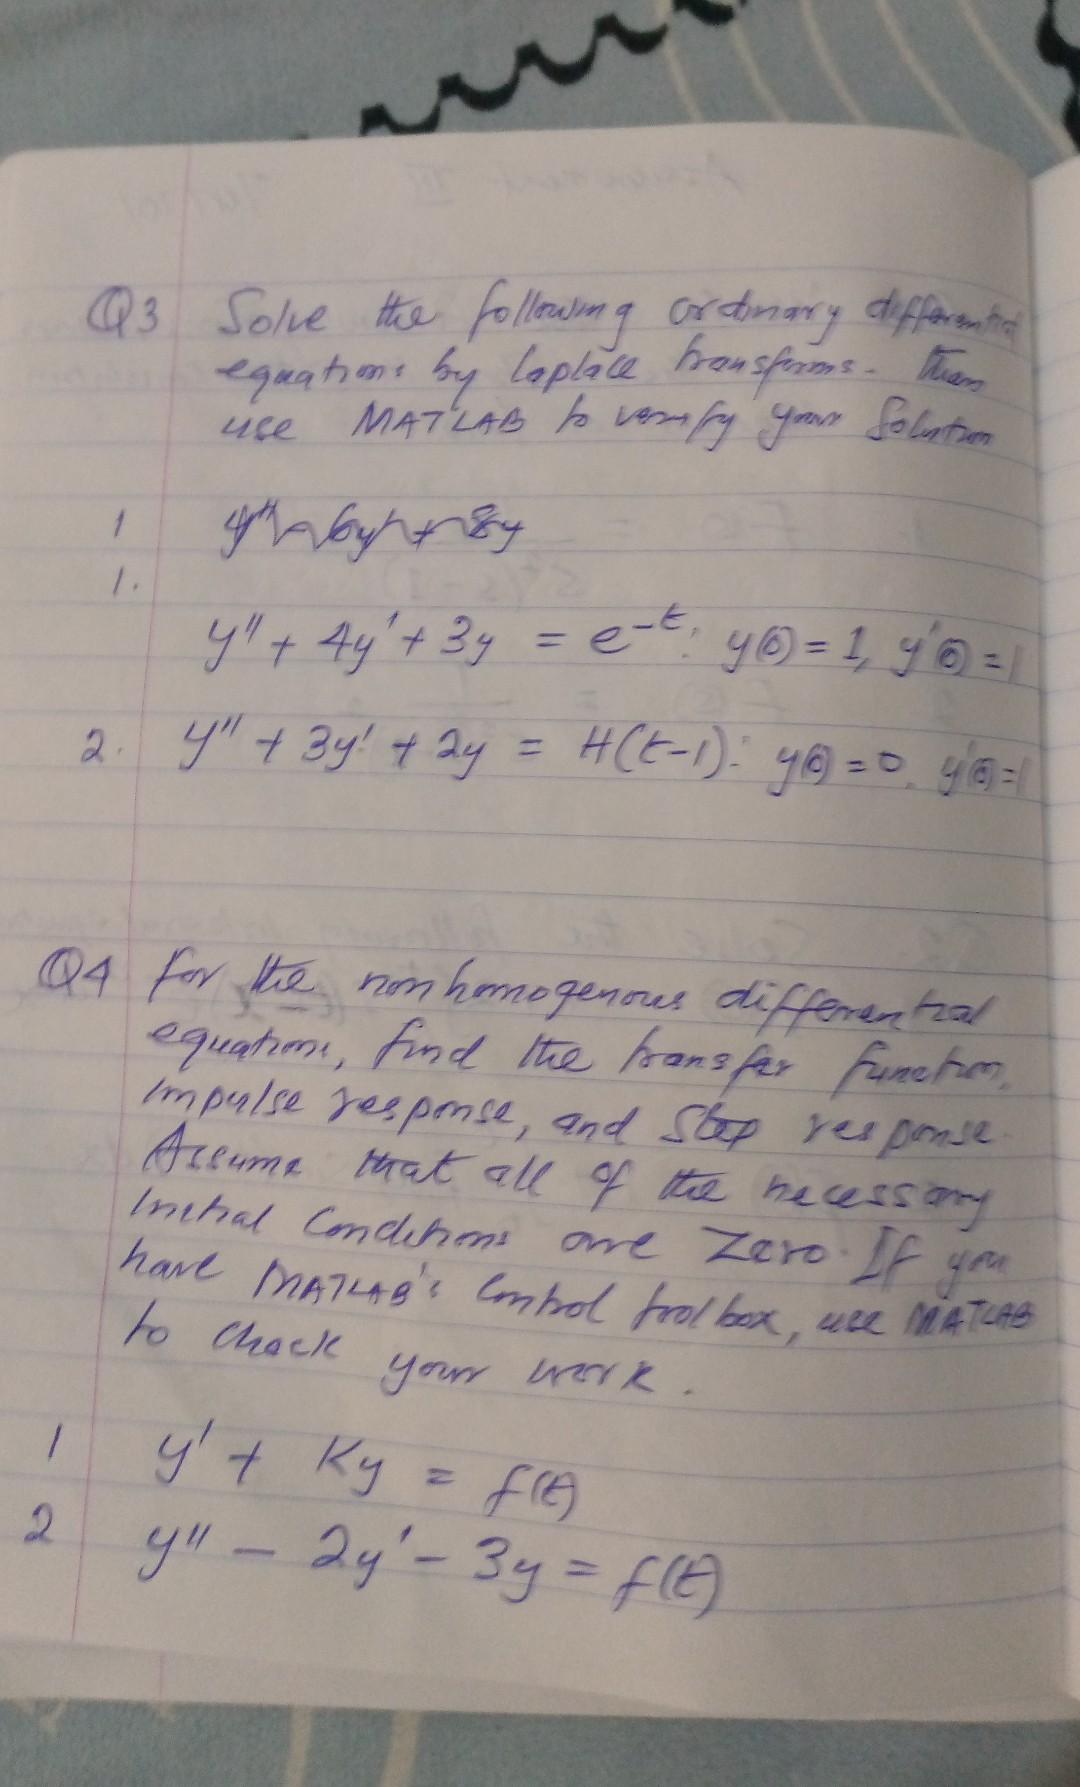 Q3 Solve the following ordinary differential
equations by laplace transforms. Then
use MATLAB to verify your Solution
1 y" - 6y' + 8y
1.
y" + 4y' + 3y = e^-t: y(0) = 1, y'(0) = 1
2. y" + 3y' + 2y = H(t-1): y(0) = 0, y'(0) = 1
Q4 for the nonhomogenous differential
equations, find the transfer function,
impulse response, and Step response.
Assume that all of the necessary
Initial Conditions are Zero. If you
have MATLAB's Control toolbox, use MATLAB
to check your work.
1 y' + Ky = f(t)
2 y" - 2y' - 3y = f(t)